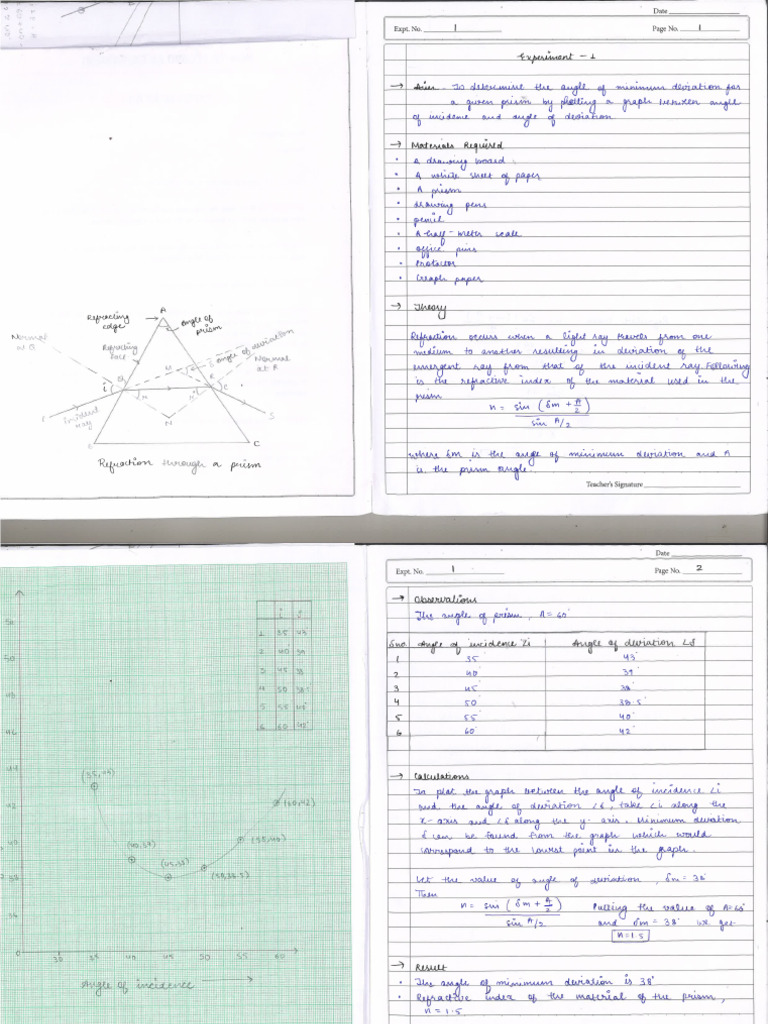 Refracting edge
A
Angle of prism
Normal at Q
Refracting face
M
δ angle of deviation
Normal at R
Q
R
i
e
N
Incident ray
S
C
Refraction through a prism
Date
Expt. No. 1
Page No. 1
Experiment - 1
→ Aim - To determine the angle of minimum deviation for
a given prism by plotting a graph between angle
of incidence and angle of deviation
→ Materials Required
• A drawing board
• A white sheet of paper
• A prism
• drawing pens
• pencil
• A half-meter scale
• office pins
• Protactor
• Graph paper
→ Theory
Refraction occurs when a light ray travels from one
medium to another resulting in deviation of the
emergent ray from that of the incident ray. Following
is the refractive index of the material used in the
prism
n = sin (δm + A/2)
sin A/2
where δm is the angle of minimum deviation and A
is the prism angle.
Teacher's Signature
i δ
1 35 43
2 40 39
3 45 38
4 50 38.5
5 55 40°
6 60 42°
50
44
42
40
38
36
(40,39)
(45,38)
(50,38.5)
(55,40)
(60,42)
0 30 35 40 45 50 55 60
Angle of incidence →
Date
Expt. No. 1
Page No. 2
→ Observations
The angle of prism, A = 60°
S.no. Angle of incidence ∠i Angle of deviation ∠δ
1 35° 43°
2 40° 39°
3 45° 38°
4 50° 38.5°
5 55° 40°
6 60° 42°
→ Calculations
To plot the graph between the angle of incidence ∠i
and the angle of deviation ∠δ, take ∠i along the
x-axis and ∠δ along the y-axis. Minimum deviation
δ can be found from the graph which would
correspond to the lowest point in the graph.
Let the value of angle of deviation, δm = 38°
Then
n = sin (δm + A/2) Putting the value of A = 60°
sin A/2 and δm = 38° we get
n = 1.5
→ Result
• The angle of minimum deviation is 38°
• Refractive index of the material of the prism,
n = 1.5.